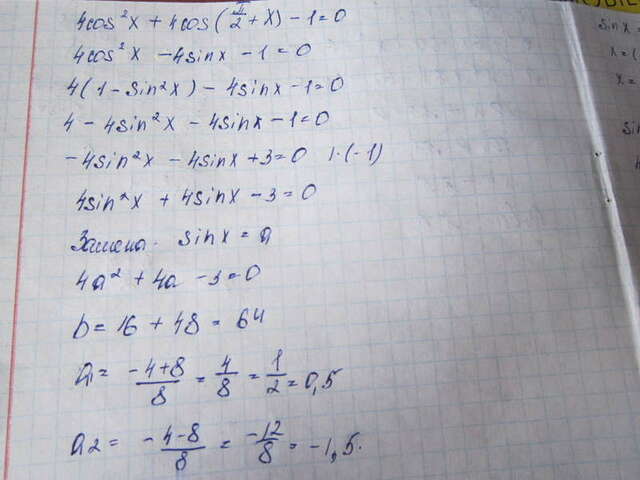 4cos²x + 4cos(π/2 + x) - 1 = 0
4cos²x - 4sinx - 1 = 0
4(1 - sin²x) - 4sinx - 1 = 0
4 - 4sin²x - 4sinx - 1 = 0
-4sin²x - 4sinx + 3 = 0 | · (-1)
4sin²x + 4sinx - 3 = 0
Замена. sinx = a
4a² + 4a - 3 = 0
D = 16 + 48 = 64
a₁ = (-4+8)/8 = 4/8 = 1/2 = 0,5
a₂ = (-4-8)/8 = -12/8 = -1,5.
sinx =
x = (
x =
sin